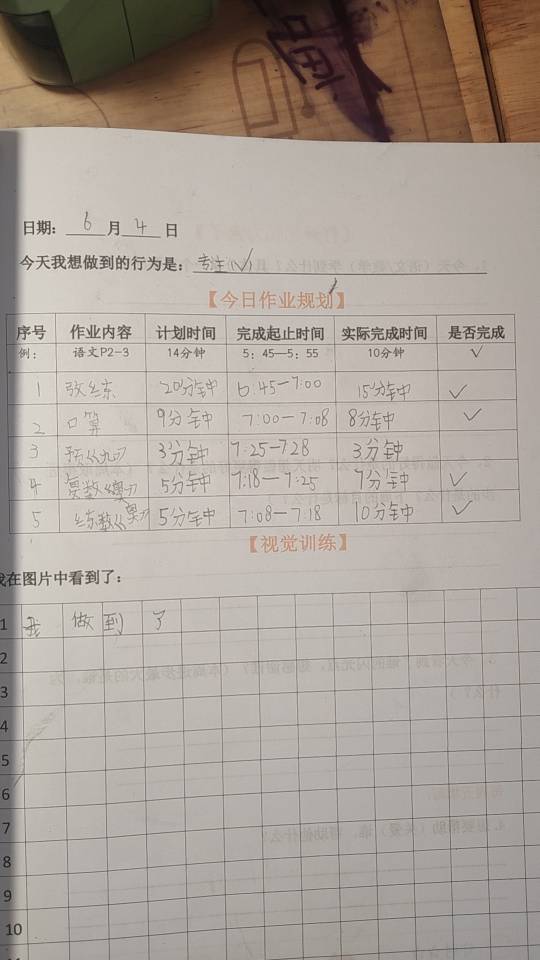 日期：6月4日
今天我想做到的行为是：专注(√)
【今日作业规划】
序号 作业内容 计划时间 完成起止时间 实际完成时间 是否完成
例： 语文P2-3 14分钟 5：45—5：55 10分钟 √
1 20分钟 6:45—7:00 15分钟 √
2 口算 9分钟 7:00—7:08 8分钟 √
3 3分钟 7:25—7:28 3分钟
4 5分钟 7:18—7:25 7分钟 √
5 5分钟 7:08—7:18 10分钟 √
【视觉训练】
我在图片中看到了：
1 我做到了
2
3
4
5
6
7
8
9
10